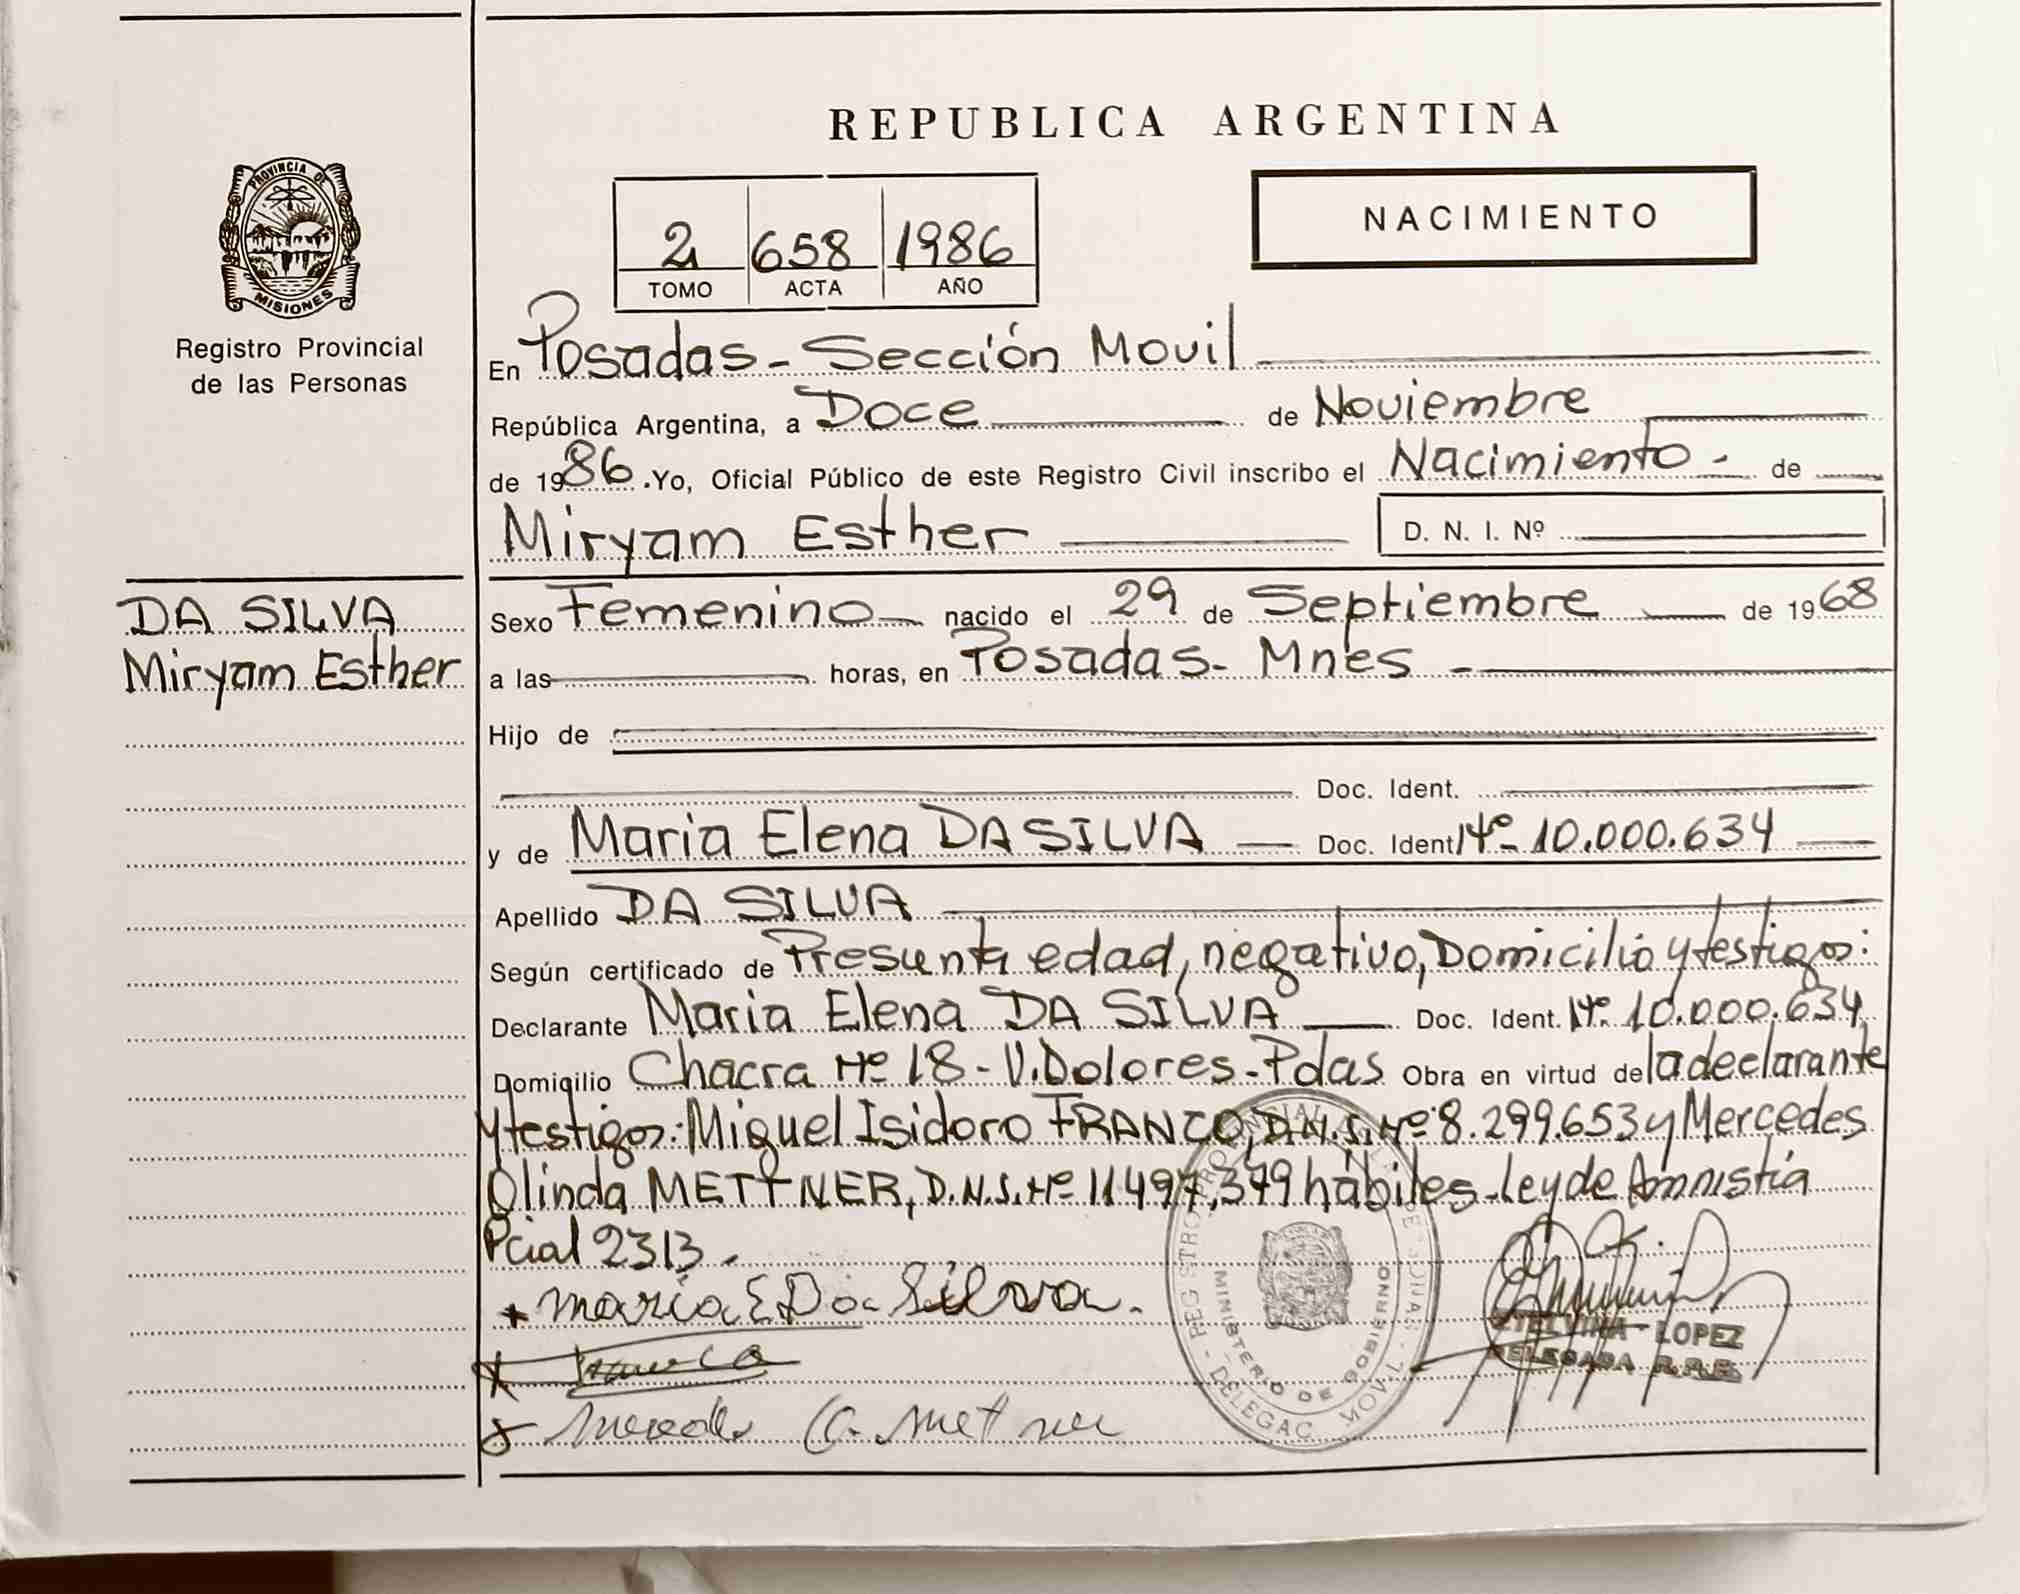 REPUBLICA ARGENTINA
PROVINCIA DE
MISIONES
Registro Provincial
de las Personas
2 658 1986
TOMO ACTA AÑO
NACIMIENTO
En Posadas - Sección Movil
República Argentina, a Doce de Noviembre
de 1986. Yo, Oficial Público de este Registro Civil inscribo el Nacimiento - de
Miryam Esther D. N. I. Nº
DA SILVA
Miryam Esther
Sexo Femenino nacido el 29 de Septiembre de 1968
a las horas, en Posadas - Mnes -
Hijo de
Doc. Ident.
y de Maria Elena DA SILVA Doc. Ident Nº 10.000.634
Apellido DA SILVA
Según certificado de Presunta edad, negativo, Domicilio y testigos:
Declarante Maria Elena DA SILVA Doc. Ident. Nº 10.000.634
Domicilio Chacra Nº 18 - V. Dolores - Pdas Obra en virtud de la declarante
y testigos: Miguel Isidoro FRANCO, D.N.I. Nº 8.299.653 y Mercedes
Olinda METTNER, D.N.I. Nº 11497,379 hábiles - Ley de Amnistía
Pcial 2313.
Maria E Da Silva.
MINISTERIO DE GOBIERNO
LOPEZ
DELEGADA